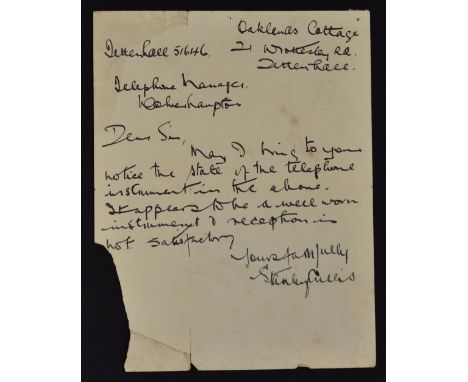 Oaklands Cottage
Tettenhall 51646. 21 Wrottesley Rd.
Tettenhall.
Telephone Manager,
Wolverhampton
Dear Sir,
May I bring to your
notice the state of the telephone
instrument in the above.
It appears to be a well worn
instrument & reception is
not satisfactory
Yours faithfully
Stanley Cullis